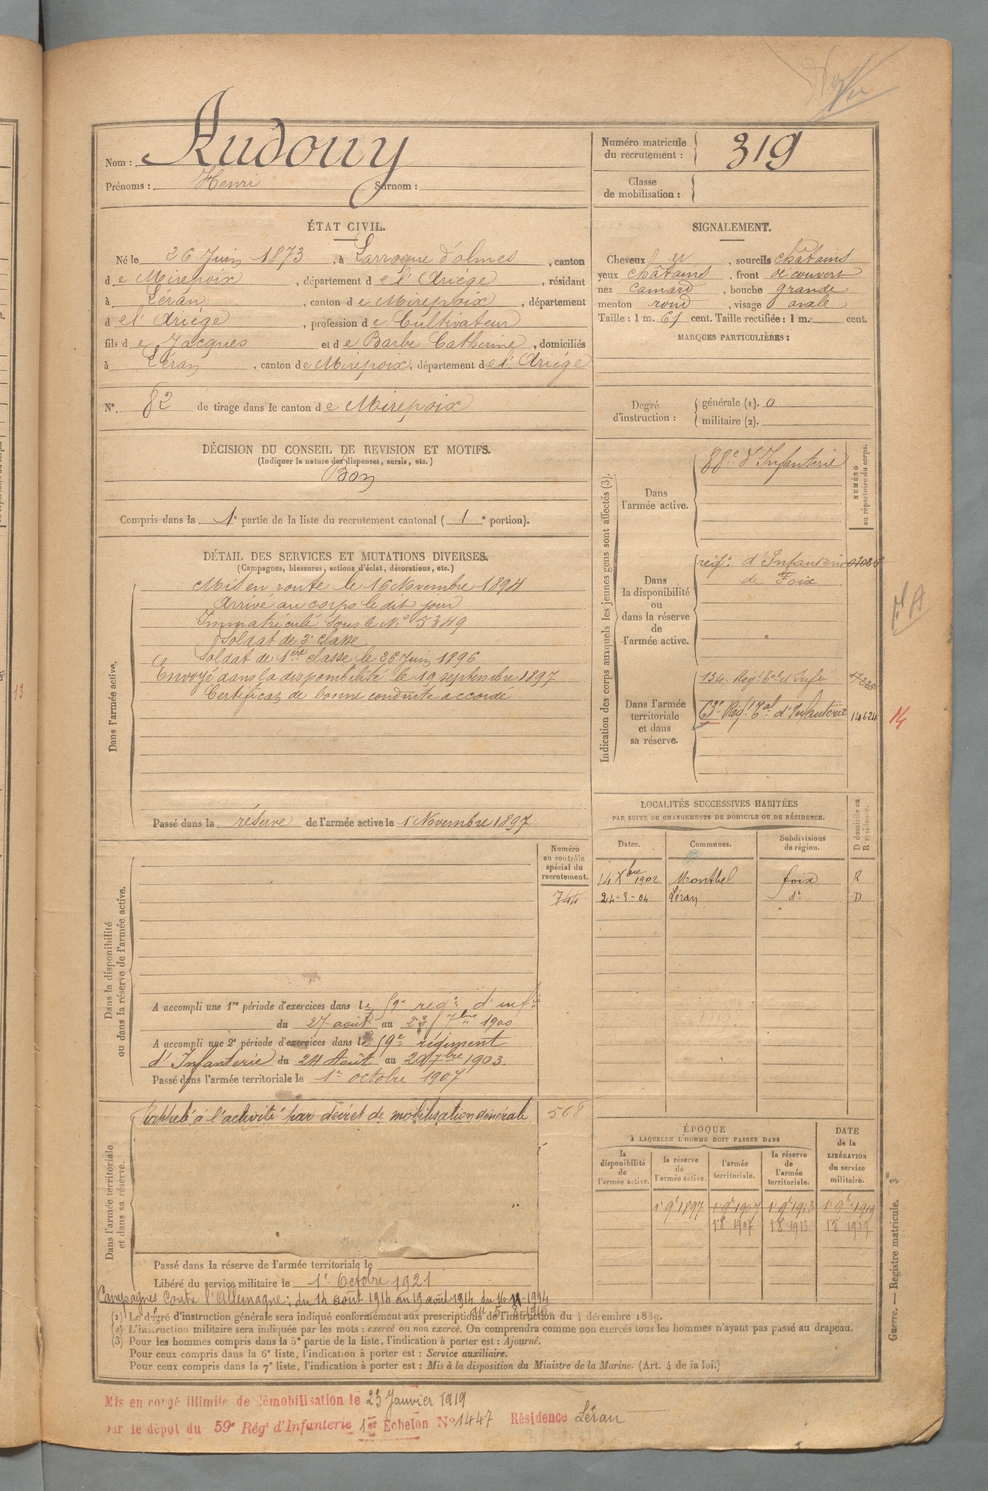 Nom : Audouy
Prénoms : Henri Surnom :
Numéro matricule du recrutement : 319
Classe de mobilisation :
ÉTAT CIVIL.
Né le 26 Juin 1873, à Larroque d'olmes, canton
de Mirepoix, département de l'Ariége, résidant
à Léran, canton de Mirepoix, département
de l'Ariége, profession de Cultivateur
fils de Jacques et de Barbe Catherine, domiciliés
à Léran, canton de Mirepoix, département de l'Ariége
N° 82 de tirage dans le canton de Mirepoix
SIGNALEMENT.
Cheveux, sourcils châtains
yeux châtains, front découvert
nez camard, bouche grande
menton rond, visage ovale
Taille : 1 m. 61 cent. Taille rectifiée : 1 m. cent.
MARQUES PARTICULIÈRES :
Degré d'instruction : générale (1). 0
militaire (2).
DÉCISION DU CONSEIL DE REVISION ET MOTIFS.
(Indiquer la nature des dispenses, sursis, etc.)
Bon
Compris dans la 1e partie de la liste du recrutement cantonal ( 1e portion).
DÉTAIL DES SERVICES ET MUTATIONS DIVERSES.
(Campagnes, blessures, actions d'éclat, décorations, etc.)
Dans l'armée active.
Mis en route le 16 Novembre 1894
Arrivé au corps le dit jour
Immatriculé sous le N° 5349
Soldat de 2e classe
Soldat de 1ère classe le 26 Juin 1896
Envoyé dans la disponibilité le 19 septembre 1897
Certificat de bonne conduite accordé
Passé dans la réserve de l'armée active le 1 Novembre 1897
Indication des corps auxquels les jeunes gens sont affectés (3).
NUMÉRO au répertoire du corps.
Dans l'armée active.
88e d'Infanterie
Dans la disponibilité ou dans la réserve de l'armée active.
régt d'Infanterie
de Foix
Dans l'armée territoriale et dans sa réserve.
134 Régt tal d'Infie
Régt tal d'Infanterie 14624
14
LOCALITÉS SUCCESSIVES HABITÉES
PAR SUITE DE CHANGEMENTS DE DOMICILE OU DE RÉSIDENCE.
Dates. Communes. Subdivisions de région. D domicile ou R résidence.
14 Xbre 1902 Montbel foix R
24-3-04 Léran do D
Dans la disponibilité ou dans la réserve de l'armée active.
Numéro au contrôle spécial du recrutement.
744
A accompli une 1re période d'exercices dans le 59e régt d'inf
du 27 août au 23 7bre 1900
A accompli une 2e période d'exercices dans le 59e régiment
d'Infanterie du 24 Août au 20 7bre 1903.
Passé dans l'armée territoriale le 1er octobre 1907
Dans l'armée territoriale et dans sa réserve.
Rappelé à l'activité par décret de mobilisation générale
568
Passé dans la réserve de l'armée territoriale le
Libéré du service militaire le 1er Octobre 1921
Campagnes Contre l'Allemagne : du 14 août 1914 au 19 août 1914 du 16-11-1914
ÉPOQUE
À LAQUELLE L'HOMME DOIT PASSER DANS
la disponibilité de l'armée active. la réserve de l'armée active. l'armée territoriale. la réserve de l'armée territoriale. DATE de la LIBÉRATION du service militaire.
(1) Le degré d'instruction générale sera indiqué conformément aux prescriptions de l'instruction du 4 décembre 1889.
(2) L'instruction militaire sera indiquée par les mots : exercé ou non exercé. On comprendra comme non exercés tous les hommes n'ayant pas passé au drapeau.
(3) Pour les hommes compris dans la 5e partie de la liste, l'indication à porter est : Ajourné.
Pour ceux compris dans la 6e liste, l'indication à porter est : Service auxiliaire.
Pour ceux compris dans la 7e liste, l'indication à porter est : Mis à la disposition du Ministre de la Marine. (Art. 4 de la loi.)
Guerre. — Registre matricule. 3e
Mis en congé illimité de démobilisation le 23 Janvier 1919
par le dépôt du 59e Régt d'Infanterie 1er Échelon N° 1447 Résidence Léran